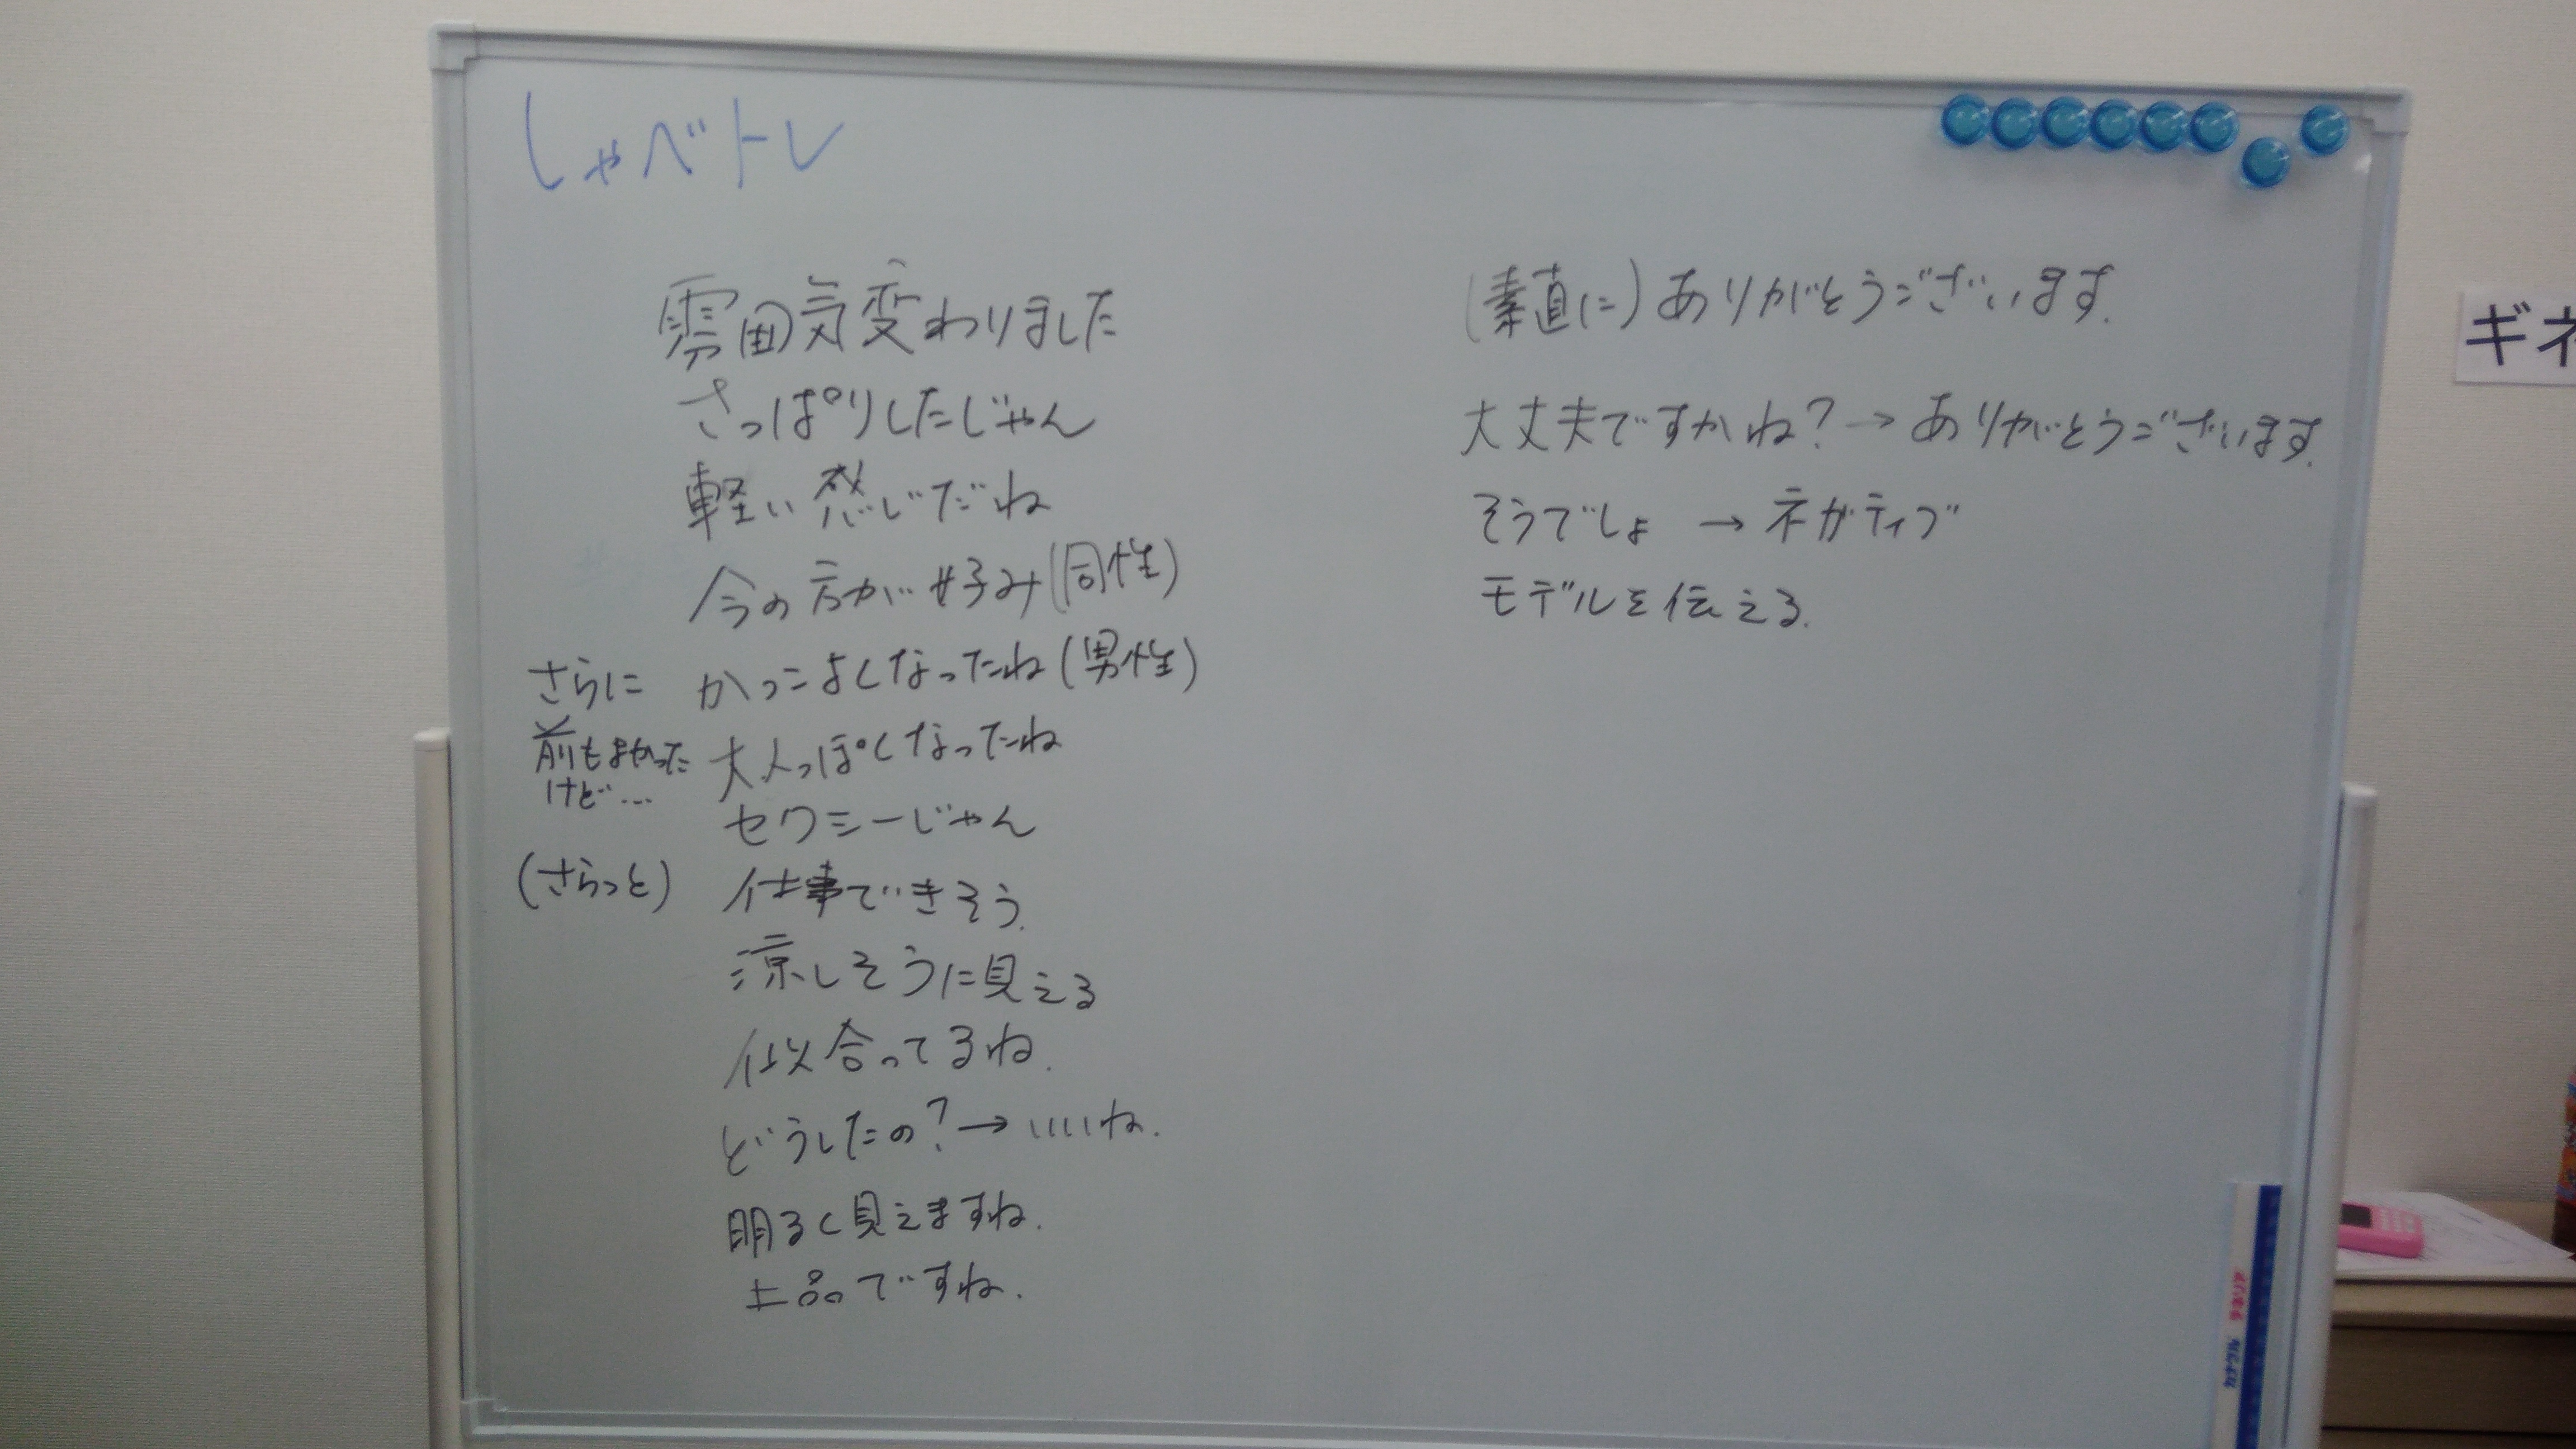 しゃべトレ
雰囲気変わりました
さっぱりしたじゃん
軽い感じだね
今の方が好み(同性)
さらに かっこよくなったね(男性)
前もよかった
けど… 大人っぽくなったね
セクシーじゃん
(さらっと) 仕事できそう.
涼しそうに見える
似合ってるね.
どうしたの?→いいね.
明るく見えますね.
上品ですね.
(素直に)ありがとうございます.
大丈夫ですかね?→ありがとうございます.
そうでしょ→ネガティブ
モデルを伝える.
ギネ